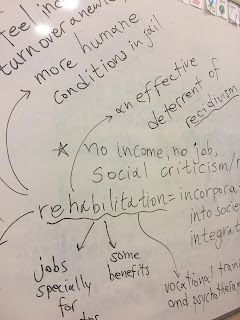 feel inc
turn over a new le
more humane
conditions in jail
an effective
deterrent of
recidivism
* no income, no job,
social criticism/r
rehabilitation = incorpora
into socie
integrat
jobs
specially
for
some
benefits
vocational traini
and psychothera